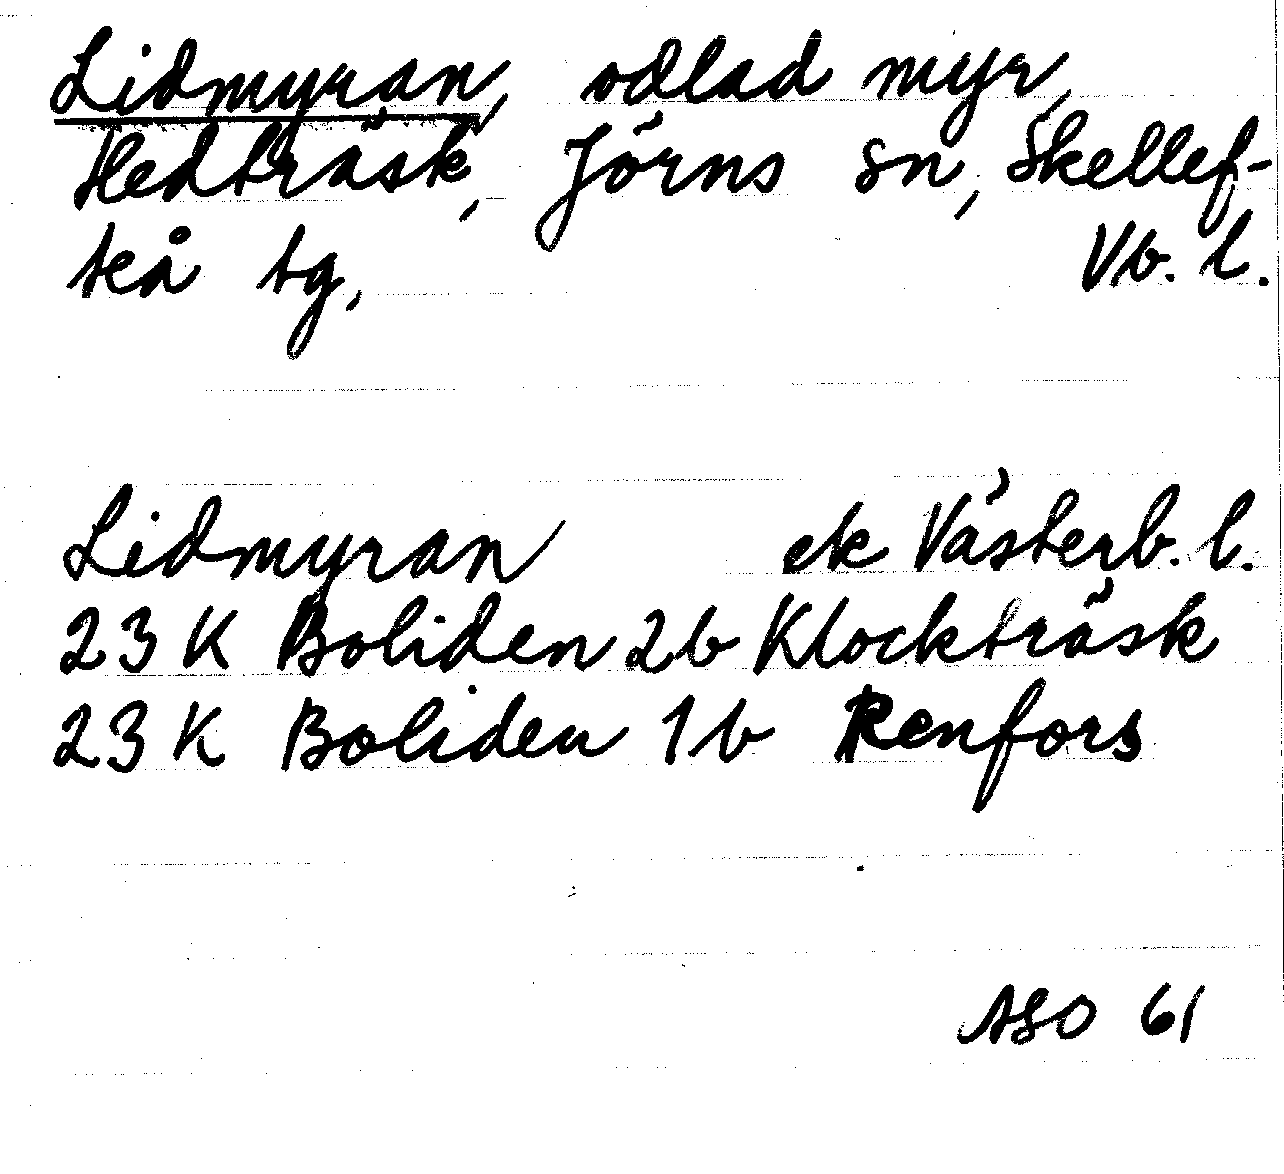 Lidmyran, odlad myr,
Hedträsk, Jörns sn, Skellef-
teå tg, Vb. l.
Lidmyran ek Västerb. l.
23 K Boliden 2b Klockträsk
23 K Boliden 1b Renfors
ASO 61